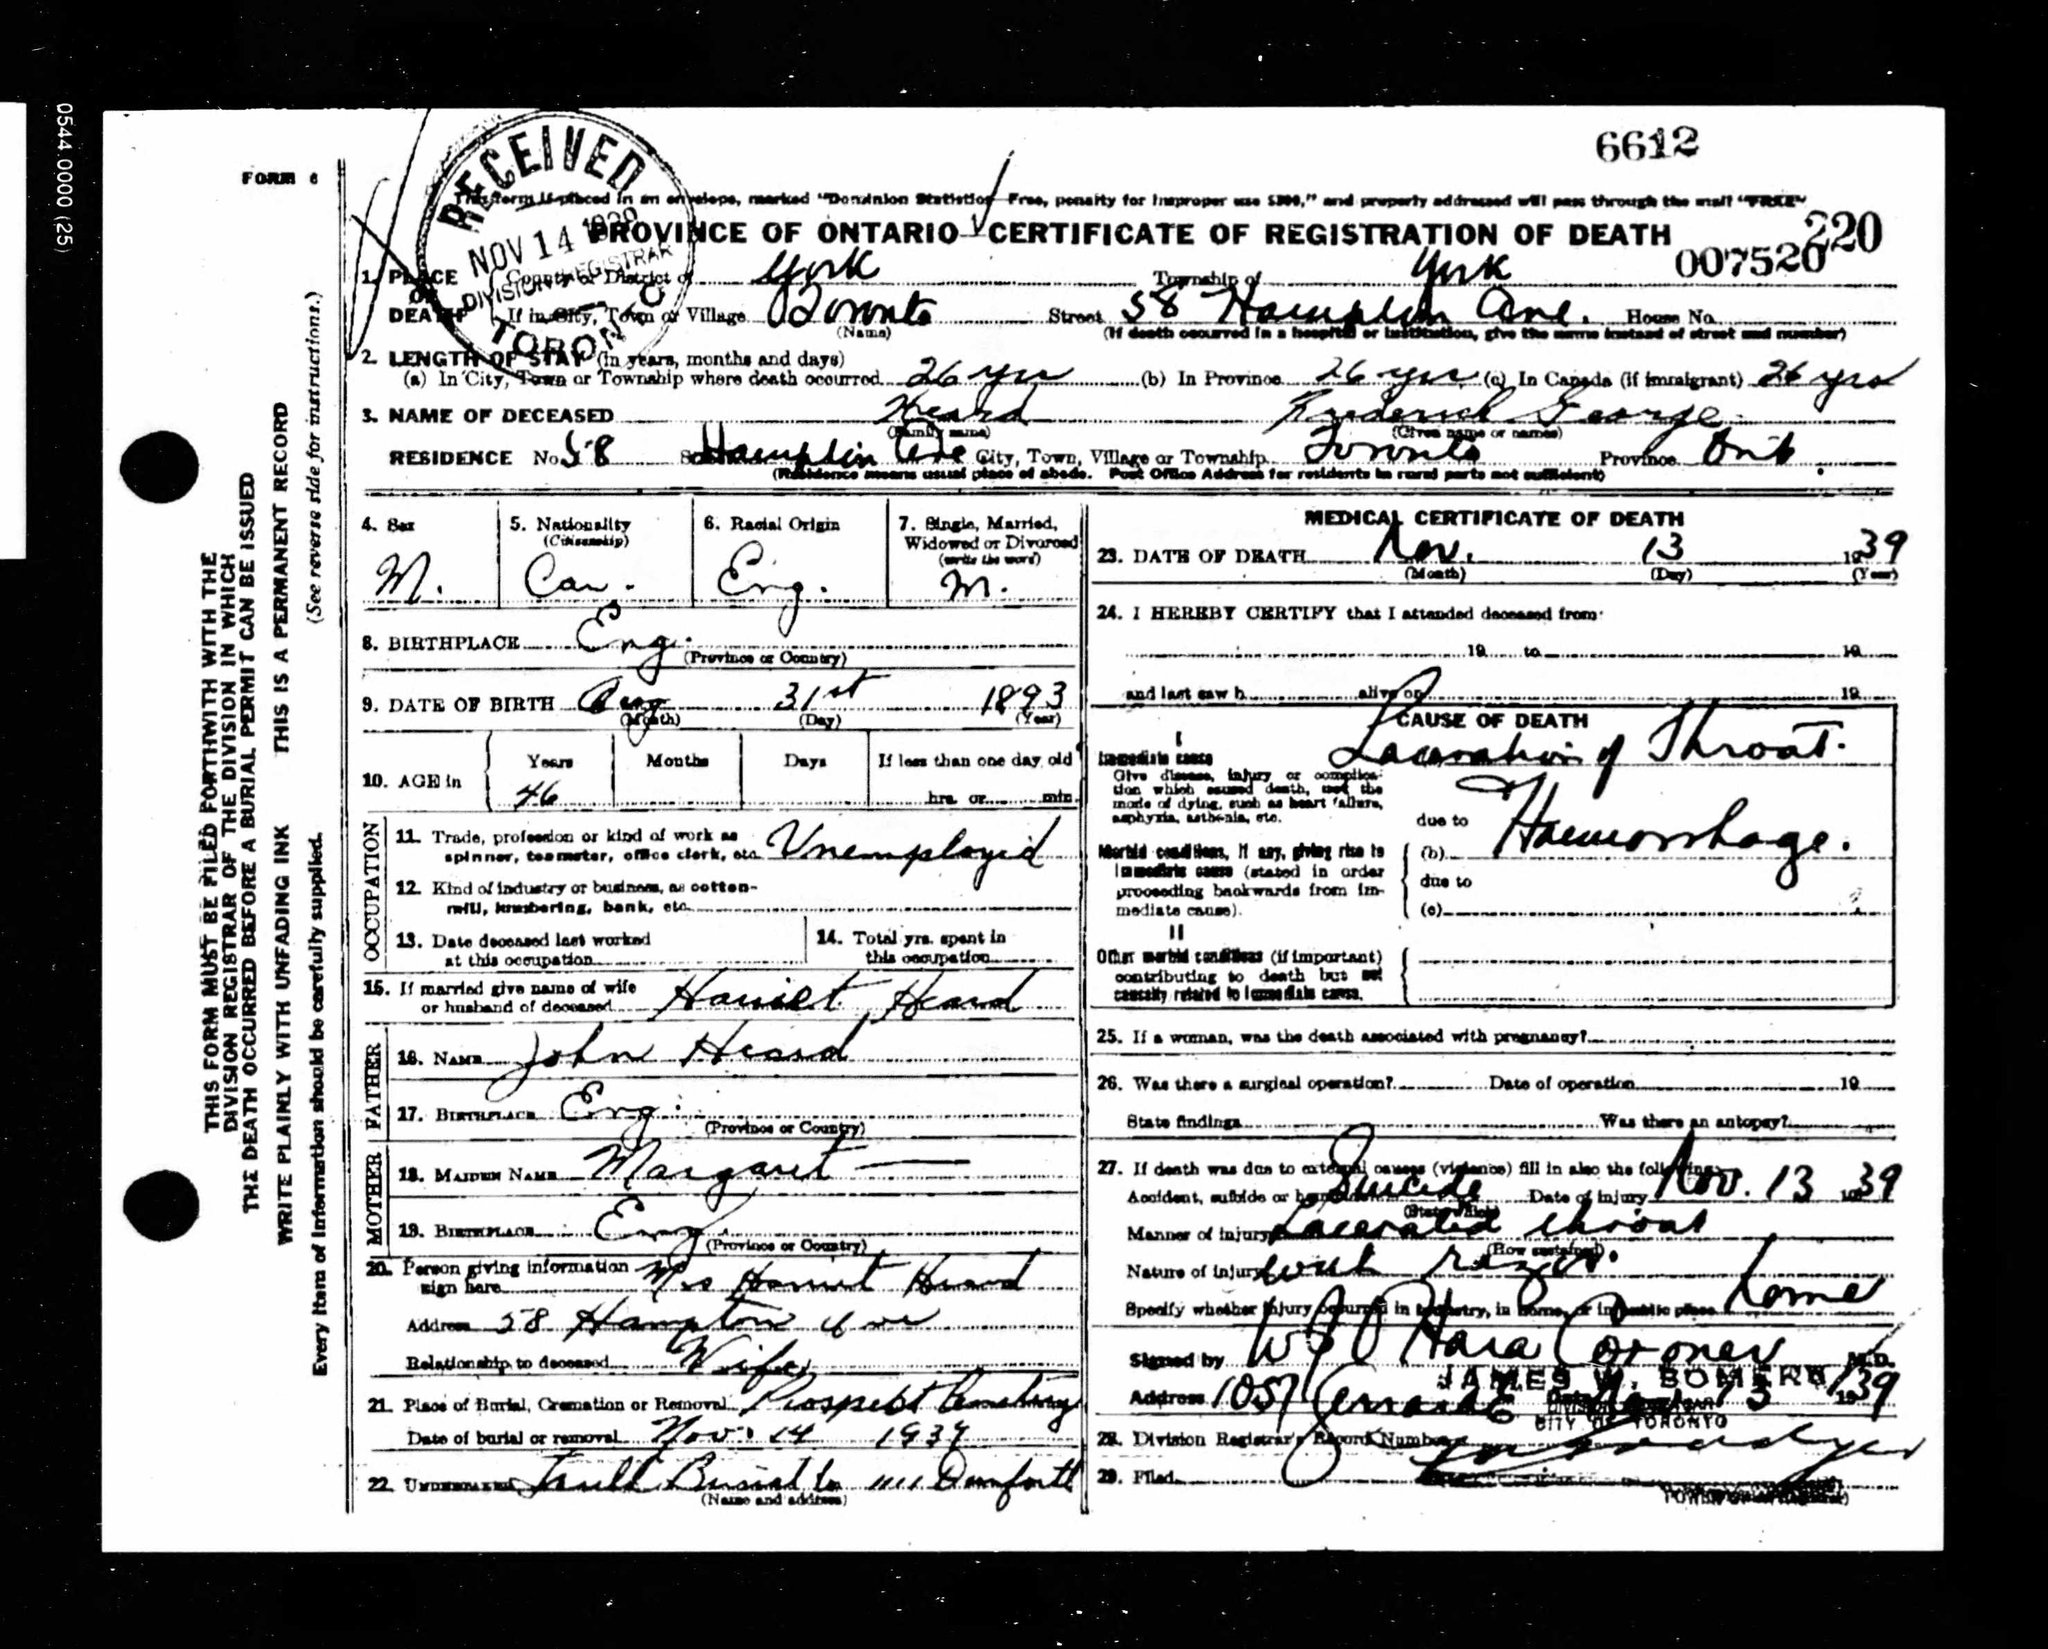 0544.0000 (25)
6612
FORM 6
RECEIVED
NOV 14 1939
DIVISION REGISTRAR
TORONTO
This form if placed in an envelope, marked "Dominion Statistics—Free, penalty for improper use $300," and properly addressed will pass through the mail "FREE"
PROVINCE OF ONTARIO—CERTIFICATE OF REGISTRATION OF DEATH
220
007520
1. PLACE OF DEATH
County or District of York Township of York
If in City, Town or Village Toronto Street 58 Hampton Ave. House No.
(Name) (If death occurred in a hospital or institution, give the name instead of street and number)
2. LENGTH OF STAY (in years, months and days)
(a) In City, Town or Township where death occurred 26 yrs (b) In Province 26 yrs (c) In Canada (if immigrant) 26 yrs
3. NAME OF DECEASED Heard George
(Family name) (Given name or names)
RESIDENCE No. 58 Hampton Ave City, Town, Village or Township Toronto Province Ont.
(Residence means usual place of abode. Post Office Address for residents in rural parts not sufficient)
4. Sex
M.
5. Nationality
(Citizenship)
Can.
6. Racial Origin
Eng.
7. Single, Married,
Widowed or Divorced
(write the word)
M.
8. BIRTHPLACE Eng.
(Province or Country)
9. DATE OF BIRTH Aug 31st 1893
(Month) (Day) (Year)
10. AGE in
Years Months Days If less than one day old
46 hrs. or min.
OCCUPATION
11. Trade, profession or kind of work as
spinner, teamster, office clerk, etc. Unemployed
12. Kind of industry or business, as cotton-
mill, lumbering, bank, etc.
13. Date deceased last worked
at this occupation
14. Total yrs. spent in
this occupation
15. If married give name of wife
or husband of deceased Harriet Heard
FATHER
16. NAME John Heard
17. BIRTHPLACE Eng.
(Province or Country)
MOTHER
18. MAIDEN NAME Margaret —
19. BIRTHPLACE Eng.
(Province or Country)
20. Person giving information
sign here Mrs Harriet Heard
Address 58 Hampton Ave
Relationship to deceased Wife
21. Place of Burial, Cremation or Removal Prospect Cemetery
Date of burial or removal Nov. 14 1939
22. UNDERTAKER Burial Co 1111 Danforth
(Name and address)
MEDICAL CERTIFICATE OF DEATH
23. DATE OF DEATH Nov. 13 1939
(Month) (Day) (Year)
24. I HEREBY CERTIFY that I attended deceased from:
19 to 19
and last saw h alive on 19
CAUSE OF DEATH
I
Immediate cause Laceration of Throat.
Give disease, injury or complica-
tion which caused death, not the
mode of dying, such as heart failure,
asphyxia, asthenia, etc.
due to
Morbid conditions, if any, giving rise to
immediate cause (stated in order
proceeding backwards from im-
mediate cause).
(b) Haemorrhage.
due to
(c)
II
Other morbid conditions (if important)
contributing to death but not
causally related to immediate cause.
25. If a woman, was the death associated with pregnancy?
26. Was there a surgical operation? Date of operation 19
State findings Was there an autopsy?
27. If death was due to external causes (violence) fill in also the following:
Accident, suicide or homicide Suicide Date of injury Nov. 13 1939
(State which)
Manner of injury Lacerated throat
(How sustained)
Nature of injury with razor.
Specify whether injury occurred in industry, in home, or in public place home
Signed by W J O'Hara Coroner M.D.
JAMES W. SOMERS
Address 1057 Gerrard E Date Nov 13 1939
DIVISION REGISTRAR
CITY OF TORONTO
28. Division Registrar's Record Number
29. Filed
THIS FORM MUST BE FILED FORTHWITH WITH THE
DIVISION REGISTRAR OF THE DIVISION IN WHICH
THE DEATH OCCURRED BEFORE A BURIAL PERMIT CAN BE ISSUED
WRITE PLAINLY WITH UNFADING INK THIS IS A PERMANENT RECORD
Every item of information should be carefully supplied. (See reverse side for instructions.)